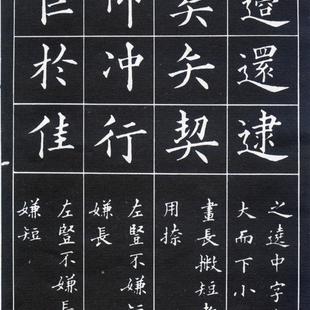 還逮
矣矢契
冲行
於佳
之遠中字
大而下小
畫長撇短
用捺
左豎不嫌
嫌長
左豎不嫌長
嫌短